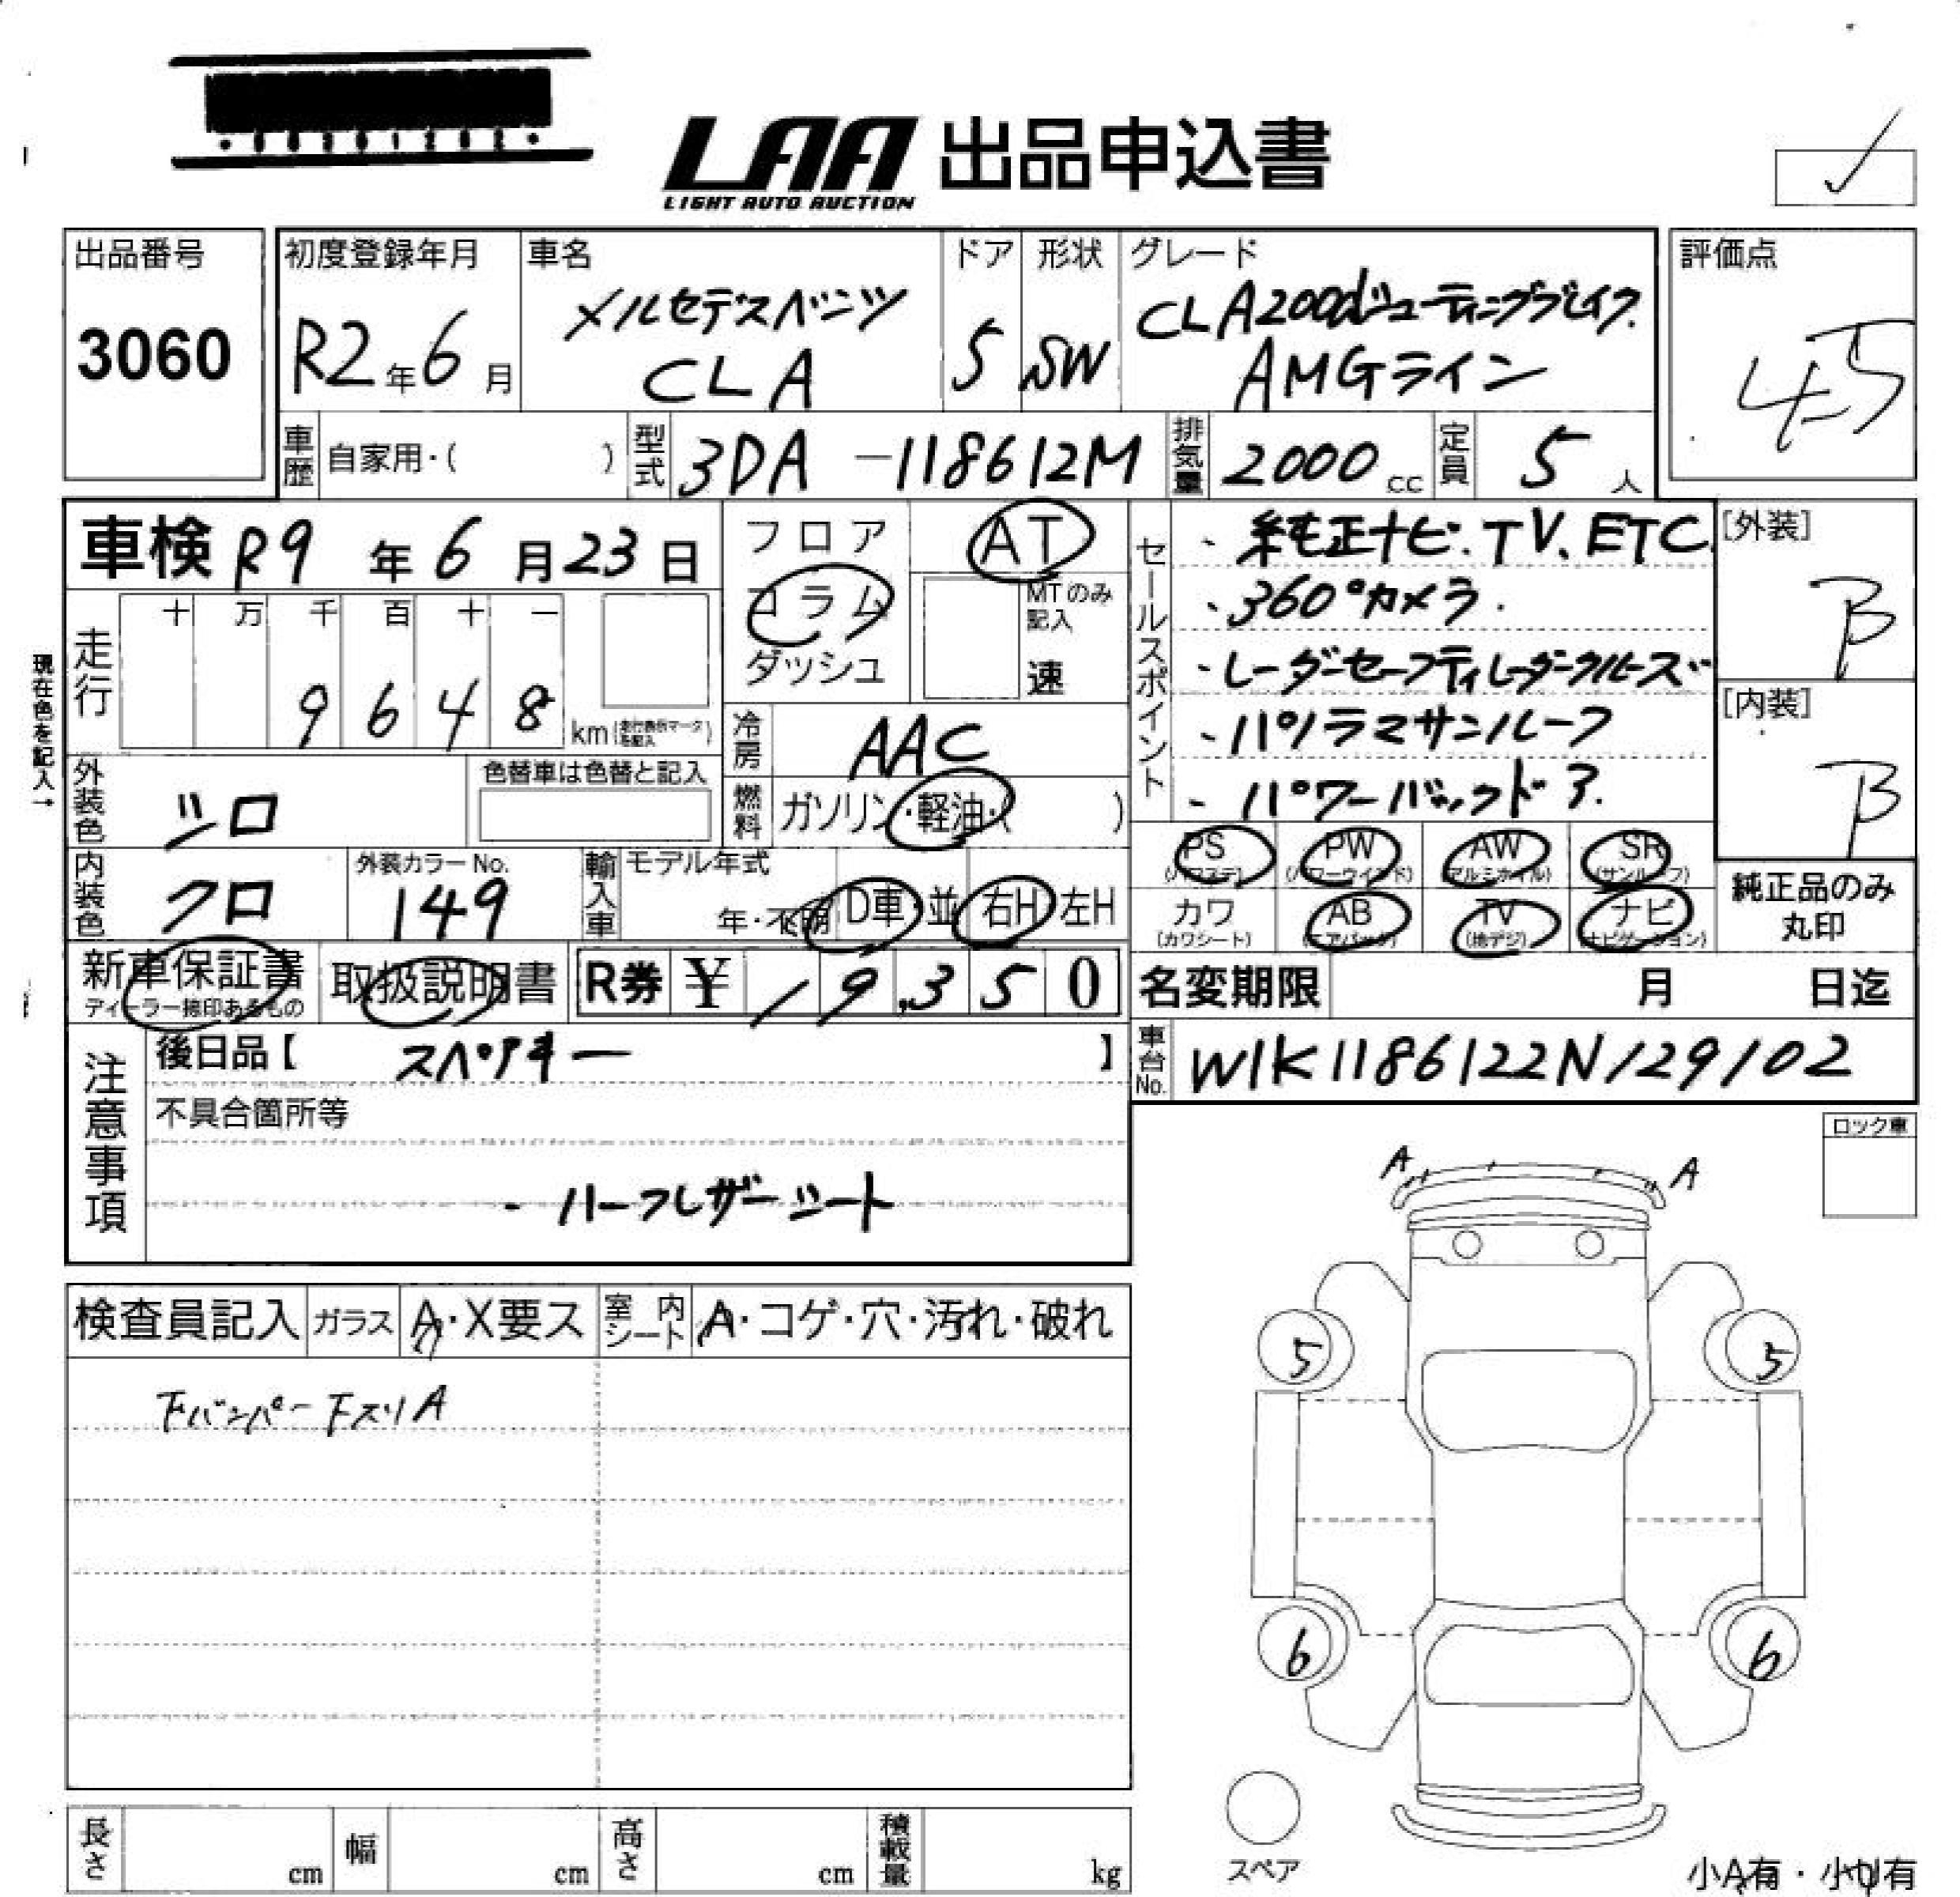 LAA 出品申込書
LIGHT AUTO AUCTION
出品番号
3060
初度登録年月
R2年6月
車名
メルセデスベンツ
CLA
ドア
5
形状
SW
グレード
CLA200dシューティングブレイク
AMGライン
評価点
4.5
車歴 自家用・( )
型式 3DA -118612M
排気量 2000cc
定員 5人
車検 R9年6月23日
フロア
コラム
ダッシュ
AT
MTのみ記入
速
セールスポイント
・純正ナビ.TV、ETC.
・360°カメラ.
・レーダーセーフティレーダークルーズ
・パノラマサンルーフ
・パワーバックドア.
[外装]
B
[内装]
B
現在色を記入→
走行
十 万 千 百 十 一
9 6 4 8 km
冷房 AAC
外装色 シロ
色替車は色替と記入
燃料 ガソリン・軽油・( )
内装色 クロ
外装カラーNo.
149
輸入車 モデル年式
年・不明 D車・並 右H 左H
PS PW AW SR
(パワステ) (パワーウインド) (アルミホイル) (サンルーフ)
カワ AB TV ナビ
(カワシート) (エアバッグ) (地デジ) (ナビゲーション)
純正品のみ
丸印
新車保証書
ディーラー捺印あるもの
取扱説明書
R券 ¥ 19,350
名変期限 月 日迄
車台No. W1K1186122N129102
注意事項
後日品【 スペアキー 】
不具合箇所等
・ハーフレザーシート
ロック車
A A
検査員記入 ガラス A・X要ス 室内シート A・コゲ・穴・汚れ・破れ
FバンパーF スリA
5 5
6 6
スペア
長さ cm 幅 cm 高さ cm 積載量 kg
小A有・小U有